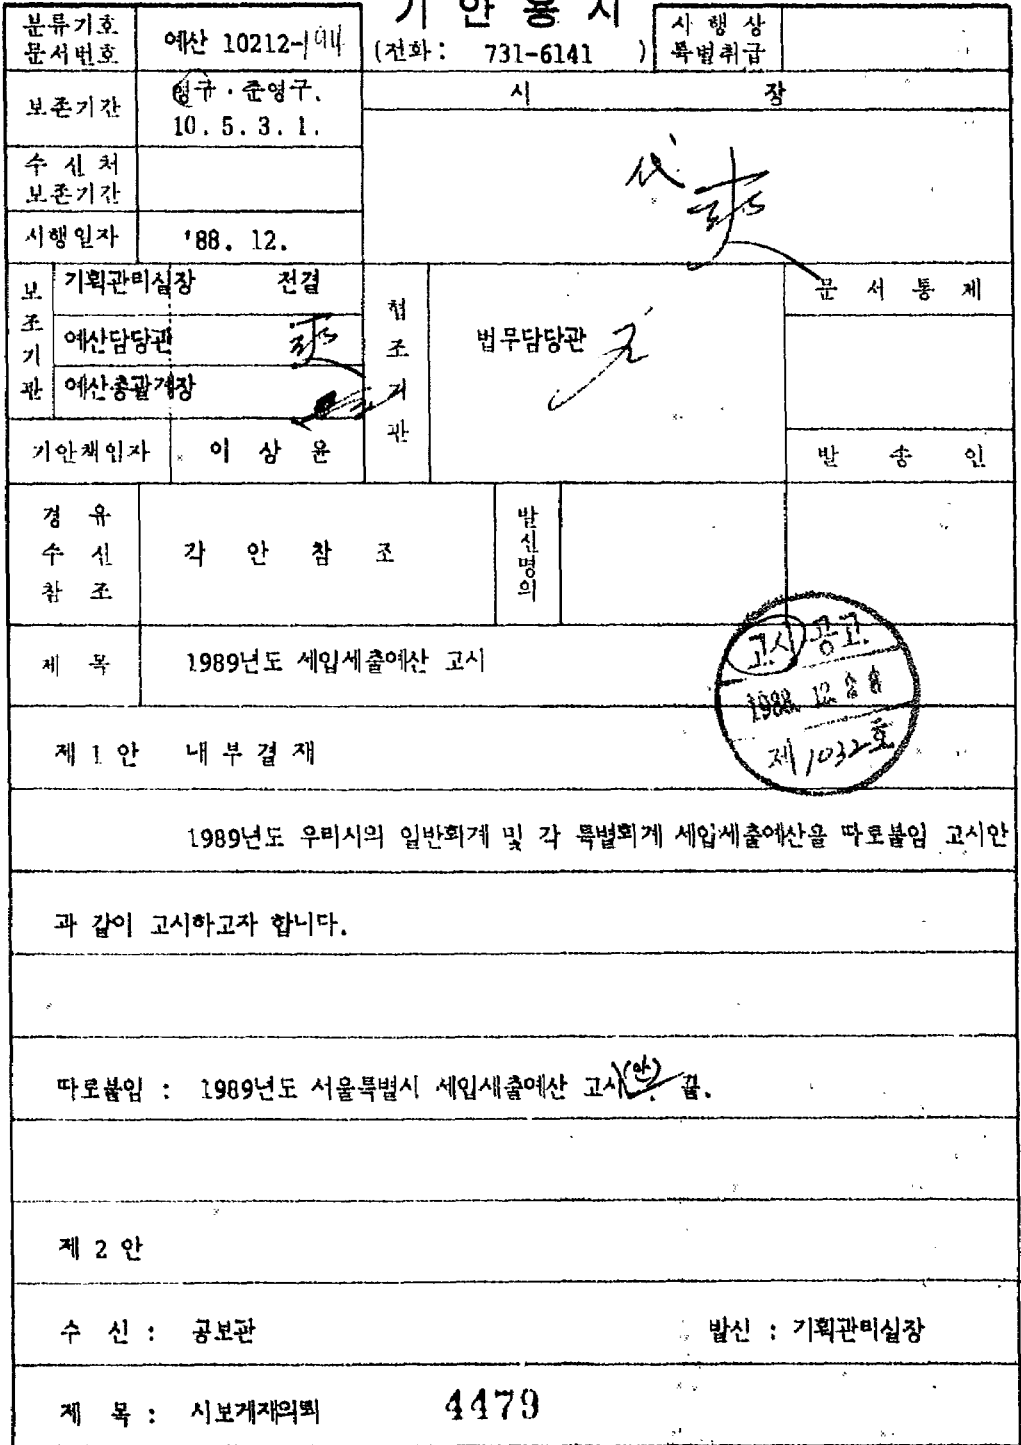 기 안 용 지
분류기호
문서번호
예산 10212-194
(전화 : 731-6141 )
시 행 상
특별취급
보존기간
영구 · 준영구.
10. 5. 3. 1.
시 장
수 신 처
보존기간
代
시행일자
'88. 12.
보조기관
기획관리실장 전결
예산담당관
예산총괄계장
협조기관
법무담당관
문 서 통 제
기안책임자
이 상 윤
발 송 인
경 유
수 신
참 조
각 안 참 조
발신명의
제 목
1989년도 세입세출예산 고시
고시 공고
1988. 12.
제 1032호
제 1 안 내 부 결 재
1989년도 우리시의 일반회계 및 각 특별회계 세입세출예산을 따로붙임 고시안
과 같이 고시하고자 합니다.
따로붙임 : 1989년도 서울특별시 세입세출예산 고시(안). 끝.
제 2 안
수 신 : 공보관 발신 : 기획관리실장
제 목 : 시보게재의뢰 4479